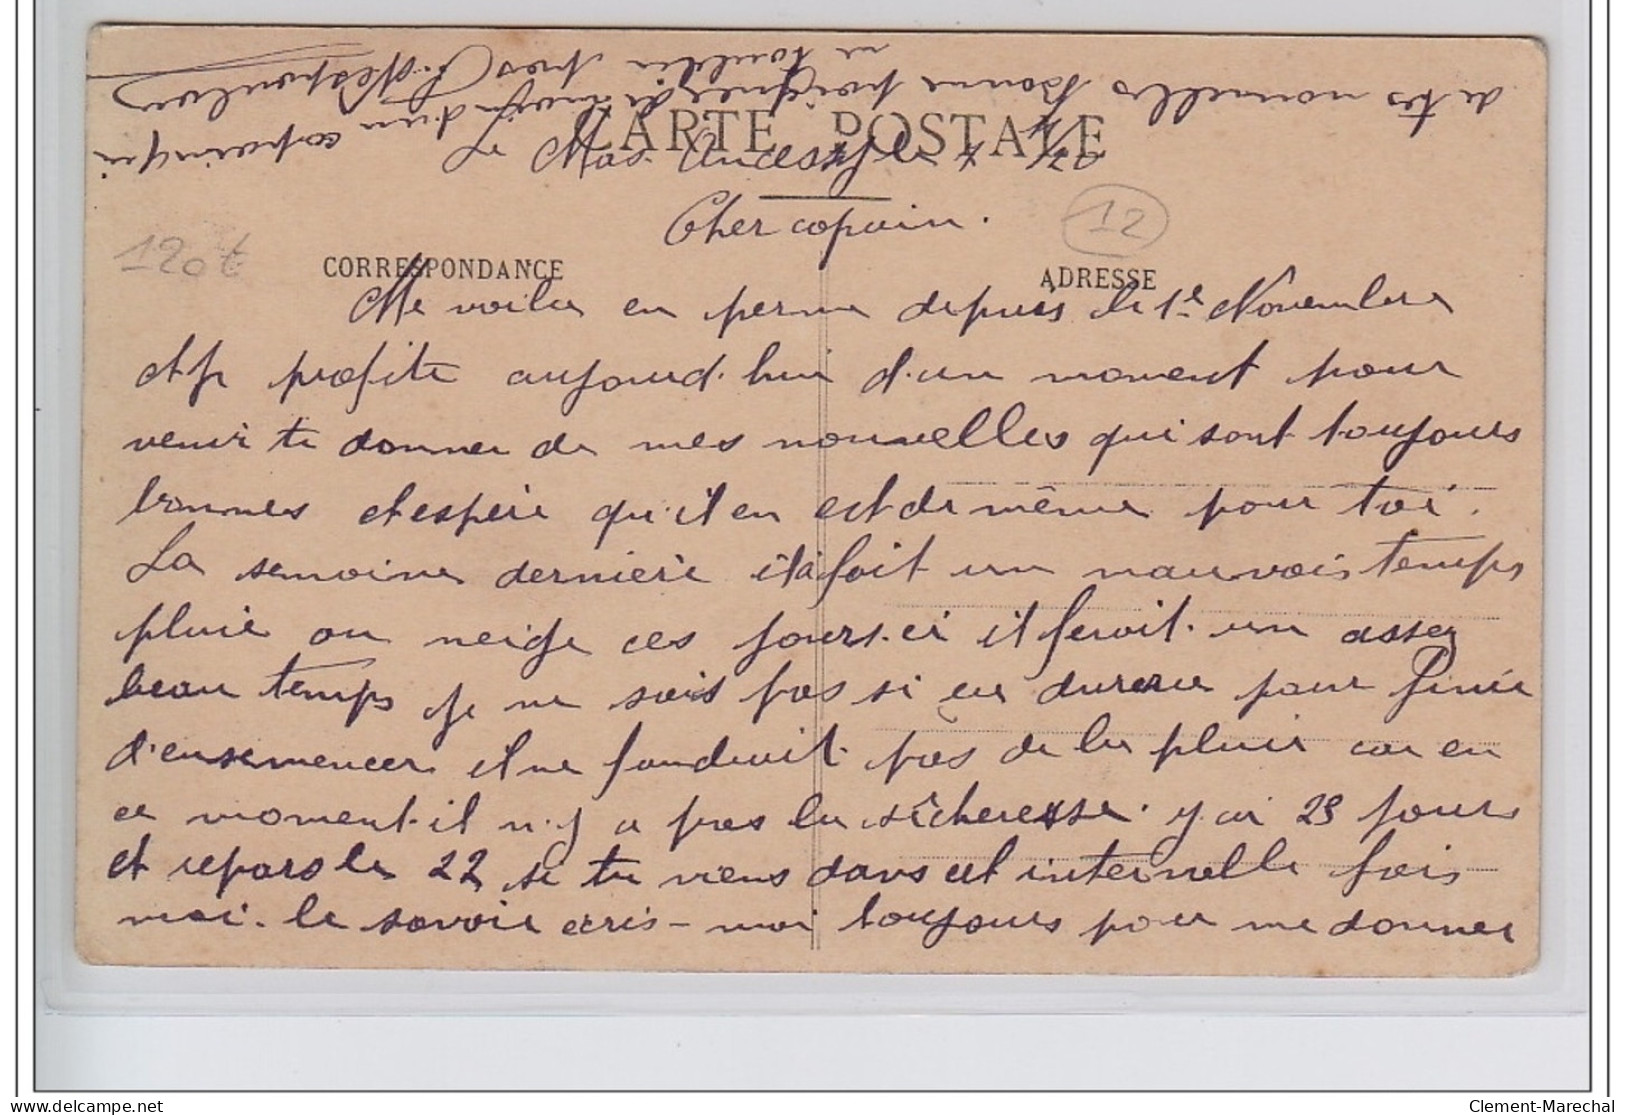 CARTE POSTALE
Le Mas
Cher copain.
12
120t
CORRESPONDANCE
ADRESSE
Me voila en perme depuis le 1e Novembre
et je profite aujourd'hui d'un moment pour
venir te donner de mes nouvelles qui sont toujours
bonnes et espère qu'il en est de même pour toi.
La semaine dernière il a fait un mauvais temps
pluie ou neige ces jours-ci il feroit un assez
beau temps je ne sais pas si ça durera pour finir
d'ensemencer il ne faudrait pas de la pluie car en
ce moment il n'y a pas la sécheresse. j'ai 23 jours
et repars le 22 si tu viens dans cet internelle fais
moi le savoir ecris-moi toujours pour me donner
de tes nouvelles bonne poignée de main d'un copain qui
ne t'oublie pas
Clement-Marechal
https://www.delcampe.net